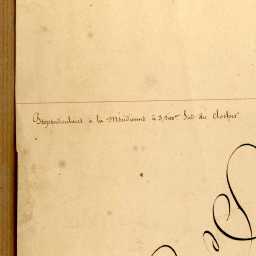 Perpendiculaire à la Méridienne à 3,500ᵐ Sud du Clocher